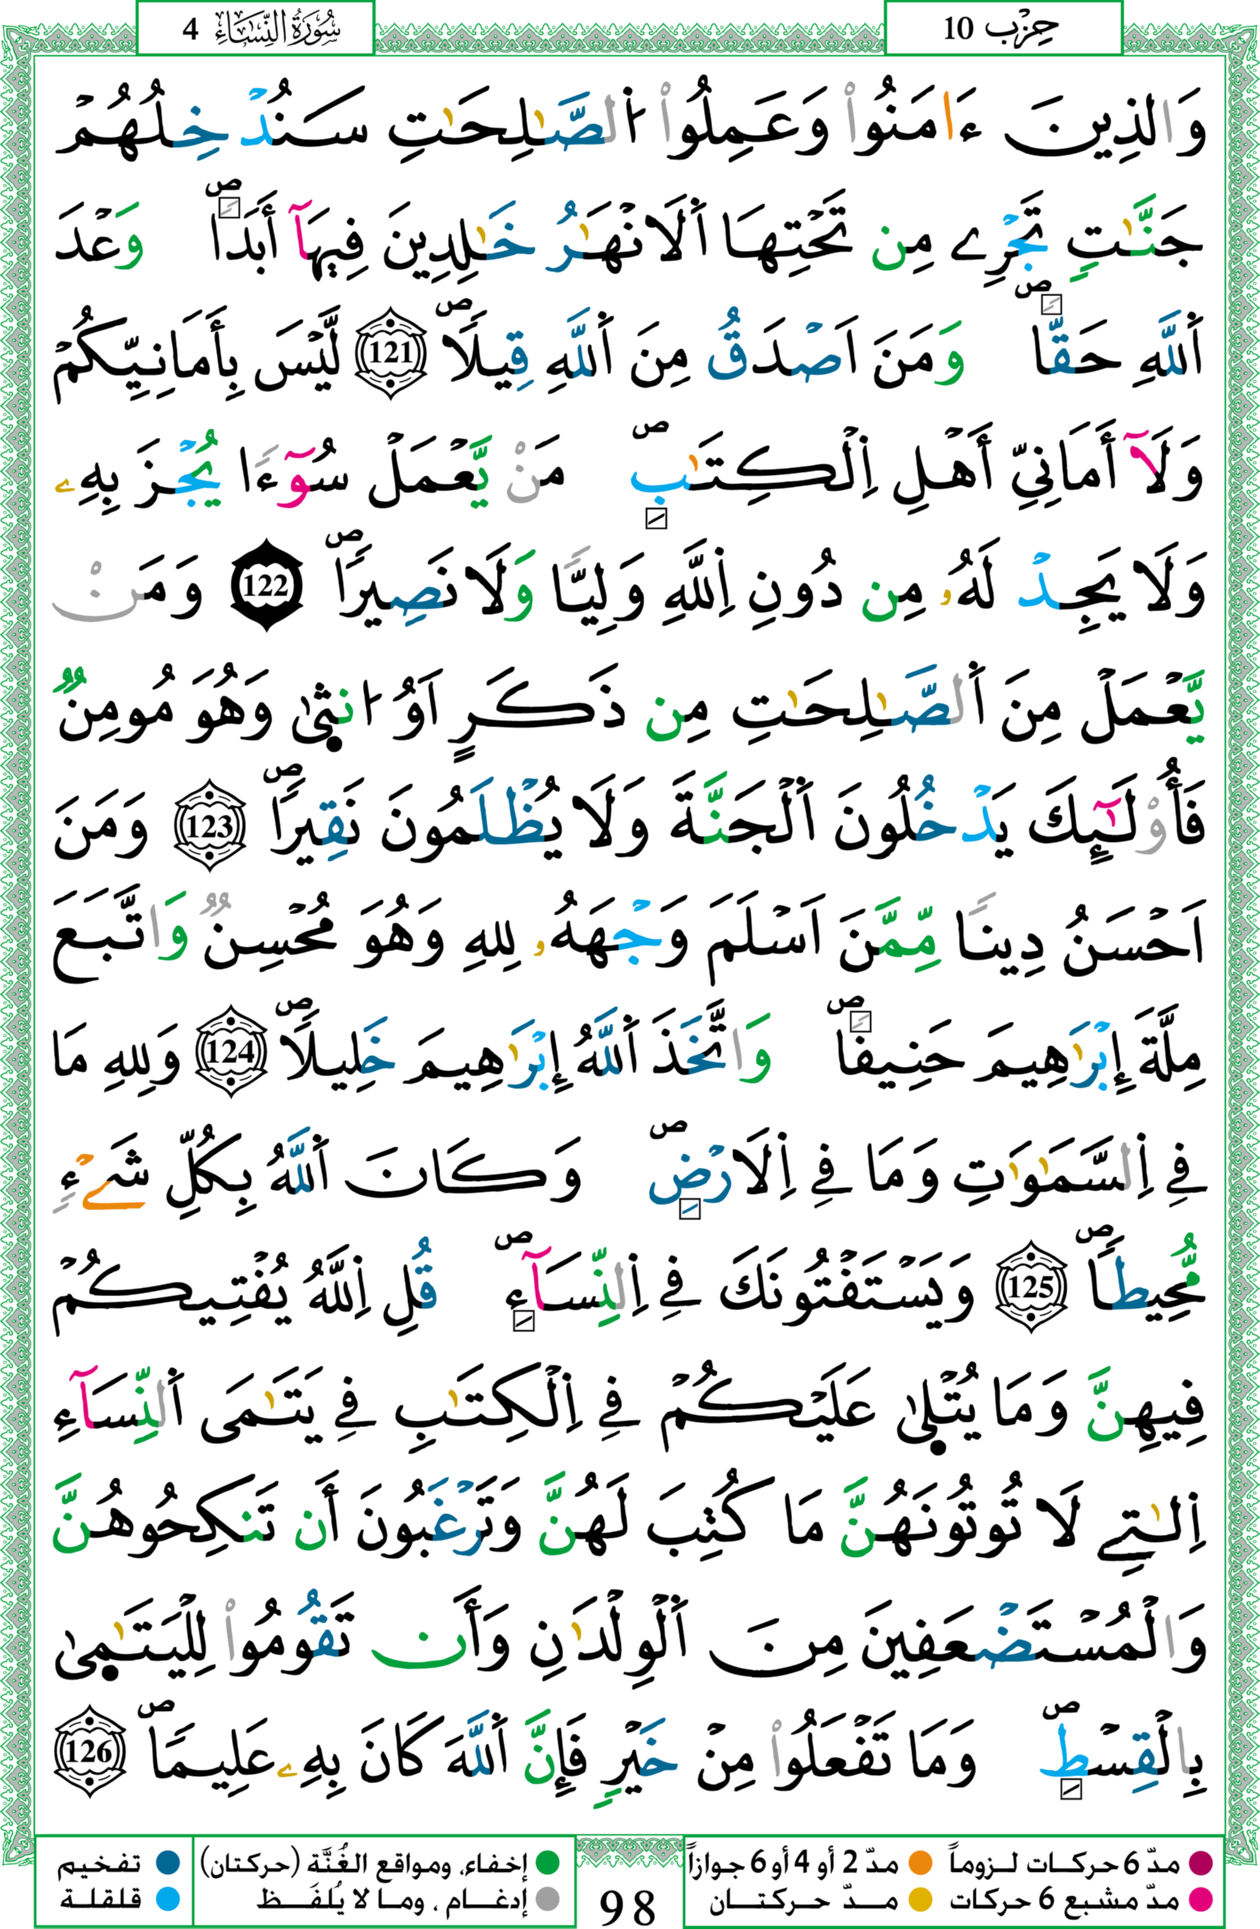 سُورَةُ النِّسَاءِ 4
حِزْب 10
وَالذِينَ ءَامَنُواْ وَعَمِلُواْ اُ۬لصَّٰلِحَٰتِ سَنُدْخِلُهُمْ
جَنَّٰتٖ تَجْرِے مِن تَحْتِهَا اَ۬لَانْهَٰرُ خَٰلِدِينَ فِيهَآ أَبَداٗۖ وَعْدَ
اَ۬للَّهِ حَقّاٗۖ وَمَنَ اَصْدَقُ مِنَ اَ۬للَّهِ قِيلاٗۖ 121 لَّيْسَ بِأَمَانِيِّكُمْ
وَلَآ أَمَانِيِّ أَهْلِ اِ۬لْكِتَٰبِۖ مَنْ يَّعْمَلْ سُوٓءاٗ يُجْزَ بِهِۦ
وَلَا يَجِدْ لَهُۥ مِن دُونِ اِ۬للَّهِ وَلِيّاٗ وَلَا نَصِيراٗۖ 122 وَمَنْ
يَّعْمَلْ مِنَ اَ۬لصَّٰلِحَٰتِ مِن ذَكَرٍ اَوُ ا۟نث۪ىٰ وَهُوَ مُومِنٞ
فَأُوْلَٰٓئِكَ يَدْخُلُونَ اَ۬لْجَنَّةَ وَلَا يُظْلَمُونَ نَقِيراٗۖ 123 وَمَنَ
اَحْسَنُ دِيناٗ مِّمَّنَ اَسْلَمَ وَجْهَهُۥ لِلهِ وَهُوَ مُحْسِنٞ وَاتَّبَعَ
مِلَّةَ إِبْرَٰهِيمَ حَنِيفاٗۖ وَاتَّخَذَ اَ۬للَّهُ إِبْرَٰهِيمَ خَلِيلاٗۖ 124 وَلِلهِ مَا
فِے اِ۬لسَّمَٰوَٰتِ وَمَا فِے اِ۬لَارْضِۖ وَكَانَ اَ۬للَّهُ بِكُلِّ شَےْءٖ
مُّحِيطاٗۖ 125 وَيَسْتَفْتُونَكَ فِے اِ۬لنِّسَآءِۖ قُلِ اِ۬للَّهُ يُفْتِيكُمْ
فِيهِنَّ وَمَا يُتْل۪ىٰ عَلَيْكُمْ فِے اِ۬لْكِتَٰبِ فِے يَتَٰمَى اَ۬لنِّسَآءِ
اِ۬لَٰتِے لَا تُوتُونَهُنَّ مَا كُتِبَ لَهُنَّ وَتَرْغَبُونَ أَن تَنكِحُوهُنَّ
وَالْمُسْتَضْعَفِينَ مِنَ اَ۬لْوِلْدَٰنِ وَأَن تَقُومُواْ لِلْيَتَٰم۪ىٰ
بِالْقِسْطِۖ وَمَا تَفْعَلُواْ مِنْ خَيْرٖ فَإِنَّ اَ۬للَّهَ كَانَ بِهِۦ عَلِيماٗۖ 126
مدّ 6 حركات لـزوماً مدّ 2 أو 4 أو 6 جوازاً
مدّ مشبع 6 حركات مــدّ حركتــان
98
إخفاء، ومواقع الغُنَّة (حركتان) تفخيم
إدغــام ، ومـا لا يُلفَـظ قلقلة